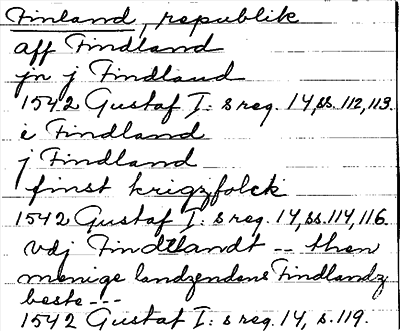 Finland, republik
aff Findland
jn j Findland
1542 Gustaf I: s reg. 14, ss. 112, 113.
i Findland
j Findland
finst krigzfolck
1542 Gustaf I: s reg. 14, ss. 114, 116.
vdj Findtlandt -- then
menige landzendens Findlandz
beste ---
1542 Gustaf I: s reg. 14, s. 119.